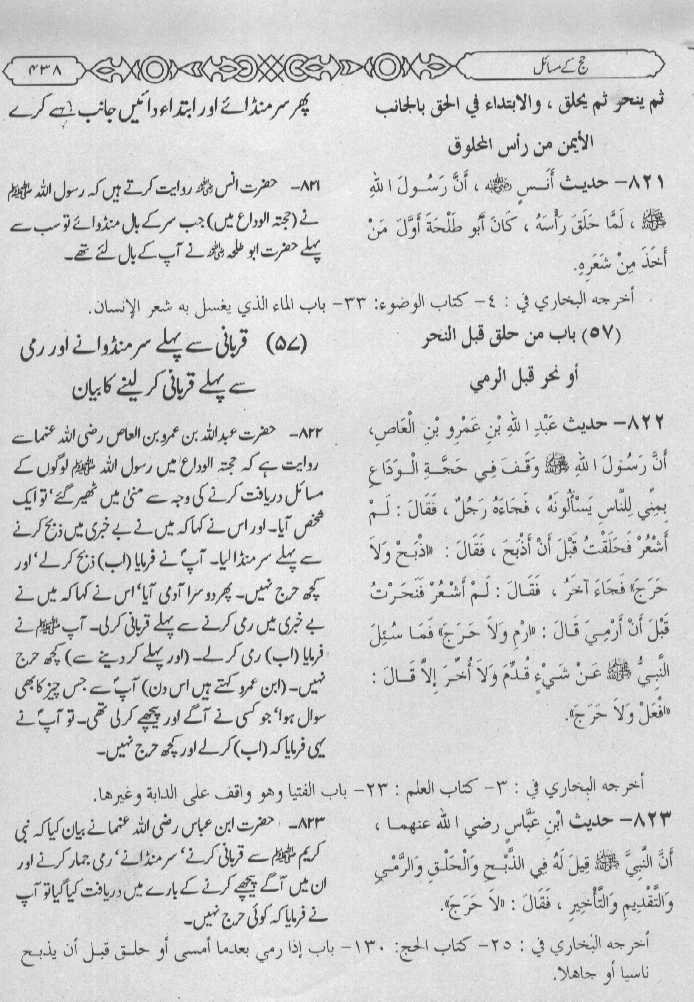 حج کے مسائل
۴۳۸
ثم ينحر ثم يحلق ، والابتداء في الحق بالجانب
الأيمن من رأس المحلوق
پھر سر منڈائے اور ابتداء دائیں جانب سے کرے
٨٢١- حديث أَنَسٍ رضي الله عنه ، أَنَّ رَسُولَ اللهِ
ﷺ ، لَمَّا حَلَقَ رَأْسَهُ ، كَانَ أَبُو طَلْحَةَ أَوَّلَ مَنْ
أَخَذَ مِنْ شَعَرِهِ.
۸۲۱- حضرت انس رضی اللہ عنہ روایت کرتے ہیں کہ رسول اللہ ﷺ
نے (حجتہ الوداع میں) جب سر کے بال منڈوائے تو سب سے
پہلے حضرت ابو طلحہ رضی اللہ عنہ نے آپ کے بال لئے تھے۔
أخرجه البخاري في : ٤- كتاب الوضوء: ٣٣- باب الماء الذي يغسل به شعر الإنسان.
(٥٧) باب من حلق قبل النحر
أو نحر قبل الرمي
(۵۷) قربانی سے پہلے سر منڈوانے اور رمی
سے پہلے قربانی کر لینے کا بیان
٨٢٢- حديث عَبْدِ اللهِ بْنِ عَمْرِو بْنِ الْعَاصِ،
أَنَّ رَسُولَ اللهِ ﷺ وَقَفَ فِي حَجَّةِ الْوَدَاعِ
بِمِنًى لِلنَّاسِ يَسْأَلُونَهُ ، فَجَاءَهُ رَجُلٌ ، فَقَالَ : لَمْ
أَشْعُرْ فَحَلَقْتُ قَبْلَ أَنْ أَذْبَحَ ، فَقَالَ : «اذْبَحْ وَلَا
حَرَجَ» فَجَاءَ آخَرُ ، فَقَالَ : لَمْ أَشْعُرْ فَنَحَرْتُ
قَبْلَ أَنْ أَرْمِيَ قَالَ : «ارْمِ وَلَا حَرَجَ» فَمَا سُئِلَ
النَّبِيُّ ﷺ عَنْ شَيْءٍ قُدِّمَ وَلَا أُخِّرَ إِلَّا قَالَ :
«افْعَلْ وَلَا حَرَجَ».
۸۲۲- حضرت عبداللہ بن عمرو بن العاص رضی اللہ عنما سے
روایت ہے کہ حجتہ الوداع میں رسول اللہ ﷺ لوگوں کے
مسائل دریافت کرنے کی وجہ سے منیٰ میں ٹھیر گئے‘ تو ایک
شخص آیا۔ اور اس نے کہا کہ میں نے بے خبری میں ذبح کرنے
سے پہلے سر منڈا لیا۔ آپؐ نے فرمایا (اب) ذبح کر لے‘ اور
کچھ حرج نہیں۔ پھر دوسرا آدمی آیا‘ اس نے کہا کہ میں نے
بے خبری میں رمی کرنے سے پہلے قربانی کر لی۔ آپ ﷺ نے
فرمایا (اب) رمی کر لے۔ (اور پہلے کر دینے سے) کچھ حرج
نہیں۔ (ابن عمرو کہتے ہیں اس دن) آپؐ سے جس چیز کا بھی
سوال ہوا‘ جو کسی نے آگے اور پیچھے کر لی تھی۔ تو آپؐ نے
یہی فرمایا کہ (اب) کر لے اور کچھ حرج نہیں۔
أخرجه البخاري في : ٣- كتاب العلم : ٢٣- باب الفتيا وهو واقف على الدابة وغيرها.
٨٢٣- حديث ابْنِ عَبَّاسٍ رضي الله عنهما ،
أَنَّ النَّبِيَّ ﷺ قِيلَ لَهُ فِي الذَّبْحِ وَالْحَلْقِ وَالرَّمْيِ
وَالتَّقْدِيمِ وَالتَّأْخِيرِ ، فَقَالَ : «لَا حَرَجَ».
۸۲۳- حضرت ابن عباس رضی اللہ عنما نے بیان کیا کہ نبی
کریم ﷺ سے قربانی کرنے‘ سر منڈانے‘ رمی جمار کرنے اور
ان میں آگے پیچھے کرنے کے بارے میں دریافت کیا گیا تو آپ
نے فرمایا کہ کوئی حرج نہیں۔
أخرجه البخاري في : ٢٥- كتاب الحج: ١٣٠- باب إذا رمي بعدما أمسى أو حلق قبل أن يذبح
ناسيا أو جاهلا.